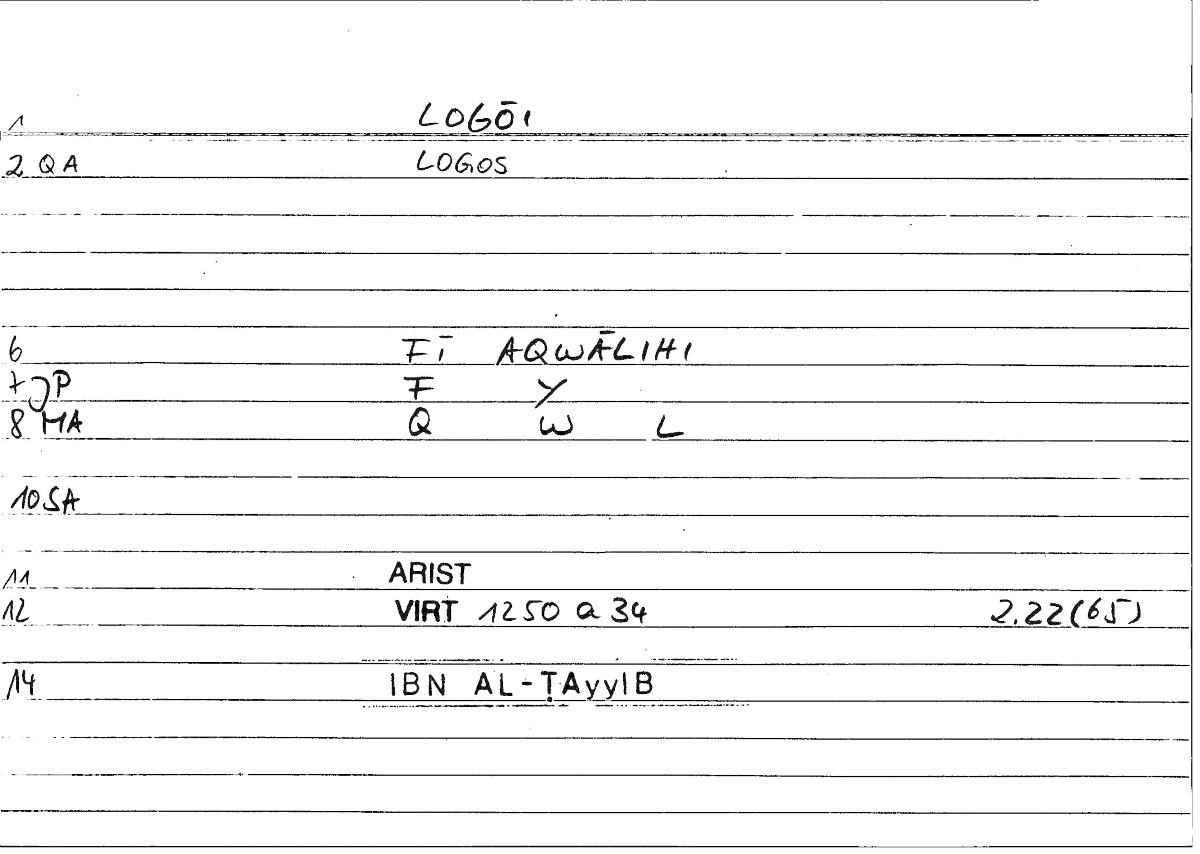 1 LOGŌI
2 QA LOGOS
6 FĪ AQWĀLIHI
7 JP F Y
8 MA Q W L
10 SA
11 ARIST
12 VIRT 1250 a 34 2.22(65)
14 IBN AL-ṬAyyIB